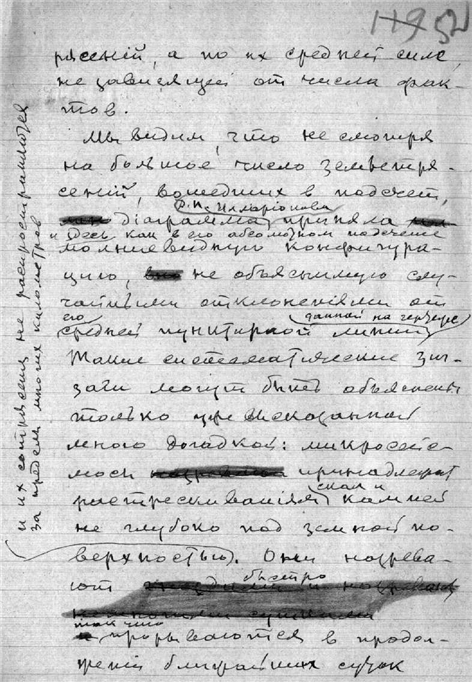 119 52
рясеній, а по их средней силе,
не зависящей от числа фак-
тов.
Мы видим, что не смотря
на большое число землетря-
сеній, вошедших в подсчет,
Р.П. Иларіонова
діаграмма приняла
и здесь как в его абсолютном подсчете
молніевидную конфигура-
цию, не объяснимую слу-
чайными отклоненіями от
его данной на чертеже
средней пунктирной линии
Такие систематические зиг-
заги могут быть объяснены
только уже высказанной
мною догадкой: микросейс-
мосы принадлежат
растрескиваніям скал и камней
не глубоко под земной по-
верхностью). Они нагрева-
ют быстро
тотчас
прорываются в продол-
женіи ближайших суток
и их сотрясения не распространяются
за пределы многих километров